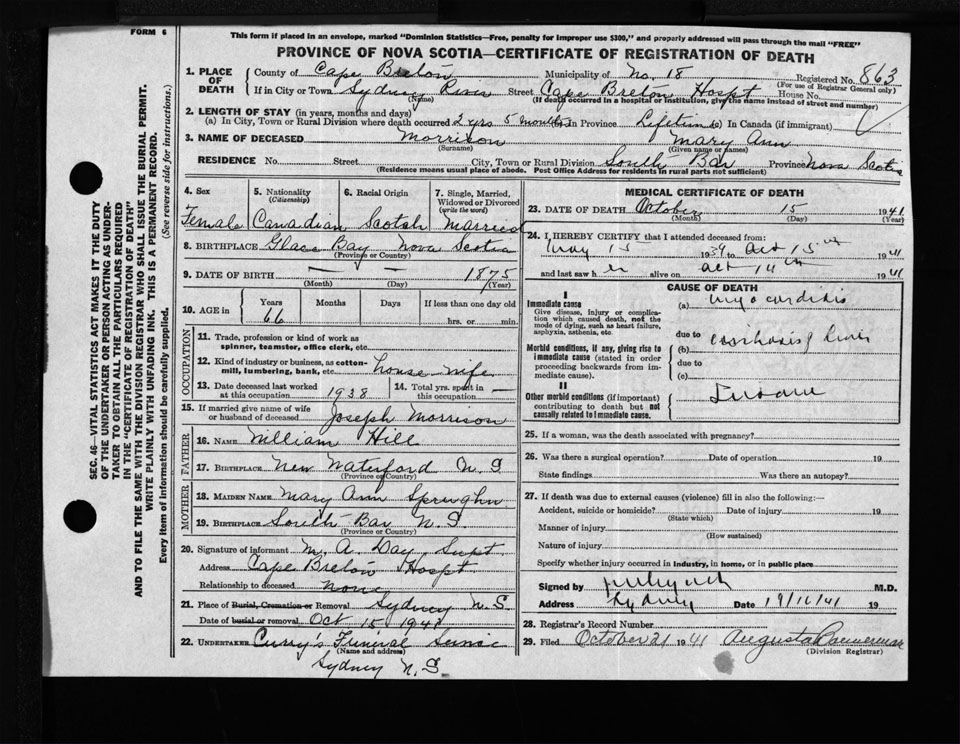 FORM 6
This form if placed in an envelope, marked "Dominion Statistics—Free, penalty for improper use $300," and properly addressed will pass through the mail "FREE"
PROVINCE OF NOVA SCOTIA—CERTIFICATE OF REGISTRATION OF DEATH
1. PLACE OF DEATH County of Cape Breton Municipality of No. 18 Registered No. 863
(For use of Registrar General only)
If in City or Town Sydney River Street Cape Breton Hospt House No.
(Name) (If death occurred in a hospital or institution, give the name instead of street and number)
2. LENGTH OF STAY (in years, months and days)
(a) In City, Town or Rural Division where death occurred 2 yrs 5 months (b) In Province Lifetime (c) In Canada (if immigrant)
3. NAME OF DECEASED Morrison Mary Ann
(Surname) (Given name or names)
RESIDENCE No. Street City, Town or Rural Division South Bar Province Nova Scotia
(Residence means usual place of abode. Post Office Address for residents in rural parts not sufficient)
4. Sex 5. Nationality (Citizenship) 6. Racial Origin 7. Single, Married, Widowed or Divorced (write the word)
Female Canadian Scotch Married
8. BIRTHPLACE Glace Bay Nova Scotia
(Province or Country)
9. DATE OF BIRTH — — 1875
(Month) (Day) (Year)
10. AGE in Years Months Days If less than one day old
66 hrs. or min.
OCCUPATION
11. Trade, profession or kind of work as spinner, teamster, office clerk, etc.
12. Kind of industry or business, as cotton-mill, lumbering, bank, etc. house wife
13. Date deceased last worked at this occupation 1938 14. Total yrs. spent in this occupation —
15. If married give name of wife or husband of deceased Joseph Morrison
FATHER
16. NAME William Hill
17. BIRTHPLACE New Waterford N. S
(Province or Country)
MOTHER
18. MAIDEN NAME Mary Ann
19. BIRTHPLACE South Bar N. S.
(Province or Country)
20. Signature of informant M. A. Day, Supt.
Address Cape Breton Hospt.
Relationship to deceased None
21. Place of Burial, Cremation or Removal Sydney N. S.
Date of burial or removal Oct 15 1941
22. UNDERTAKER Curry's Funeral Service
(Name and address)
Sydney N. S
MEDICAL CERTIFICATE OF DEATH
23. DATE OF DEATH October 15 1941
(Month) (Day) (Year)
24. I HEREBY CERTIFY that I attended deceased from:
May 15 1939 to Oct 15th 1941
and last saw her alive on Oct 14th 1941
CAUSE OF DEATH
I
Immediate cause (a) myocarditis
Give disease, injury or complication which caused death, not the mode of dying, such as heart failure, asphyxia, asthenia, etc.
due to
Morbid conditions, if any, giving rise to immediate cause (stated in order proceeding backwards from immediate cause). (b) cirrhosis of liver
due to
(c)
II
Other morbid conditions (if important) contributing to death but not causally related to immediate cause. Insane
25. If a woman, was the death associated with pregnancy?
26. Was there a surgical operation? Date of operation 19
State findings Was there an autopsy?
27. If death was due to external causes (violence) fill in also the following:—
Accident, suicide or homicide? Date of injury 19
(State which)
Manner of injury
(How sustained)
Nature of injury
Specify whether injury occurred in industry, in home, or in public place
Signed by M.D.
Address Sydney Date 19/10/41 19
28. Registrar's Record Number
29. Filed October 21 1941 Augusta
(Division Registrar)
SEC. 46—VITAL STATISTICS ACT MAKES IT THE DUTY
OF THE UNDERTAKER OR PERSON ACTING AS UNDER-
TAKER TO OBTAIN ALL THE PARTICULARS REQUIRED
IN THE "CERTIFICATE OF REGISTRATION OF DEATH"
AND TO FILE THE SAME WITH THE DIVISION REGISTRAR WHO SHALL ISSUE THE BURIAL PERMIT.
WRITE PLAINLY WITH UNFADING INK. THIS IS A PERMANENT RECORD.
Every item of information should be carefully supplied. (See reverse side for instructions.)